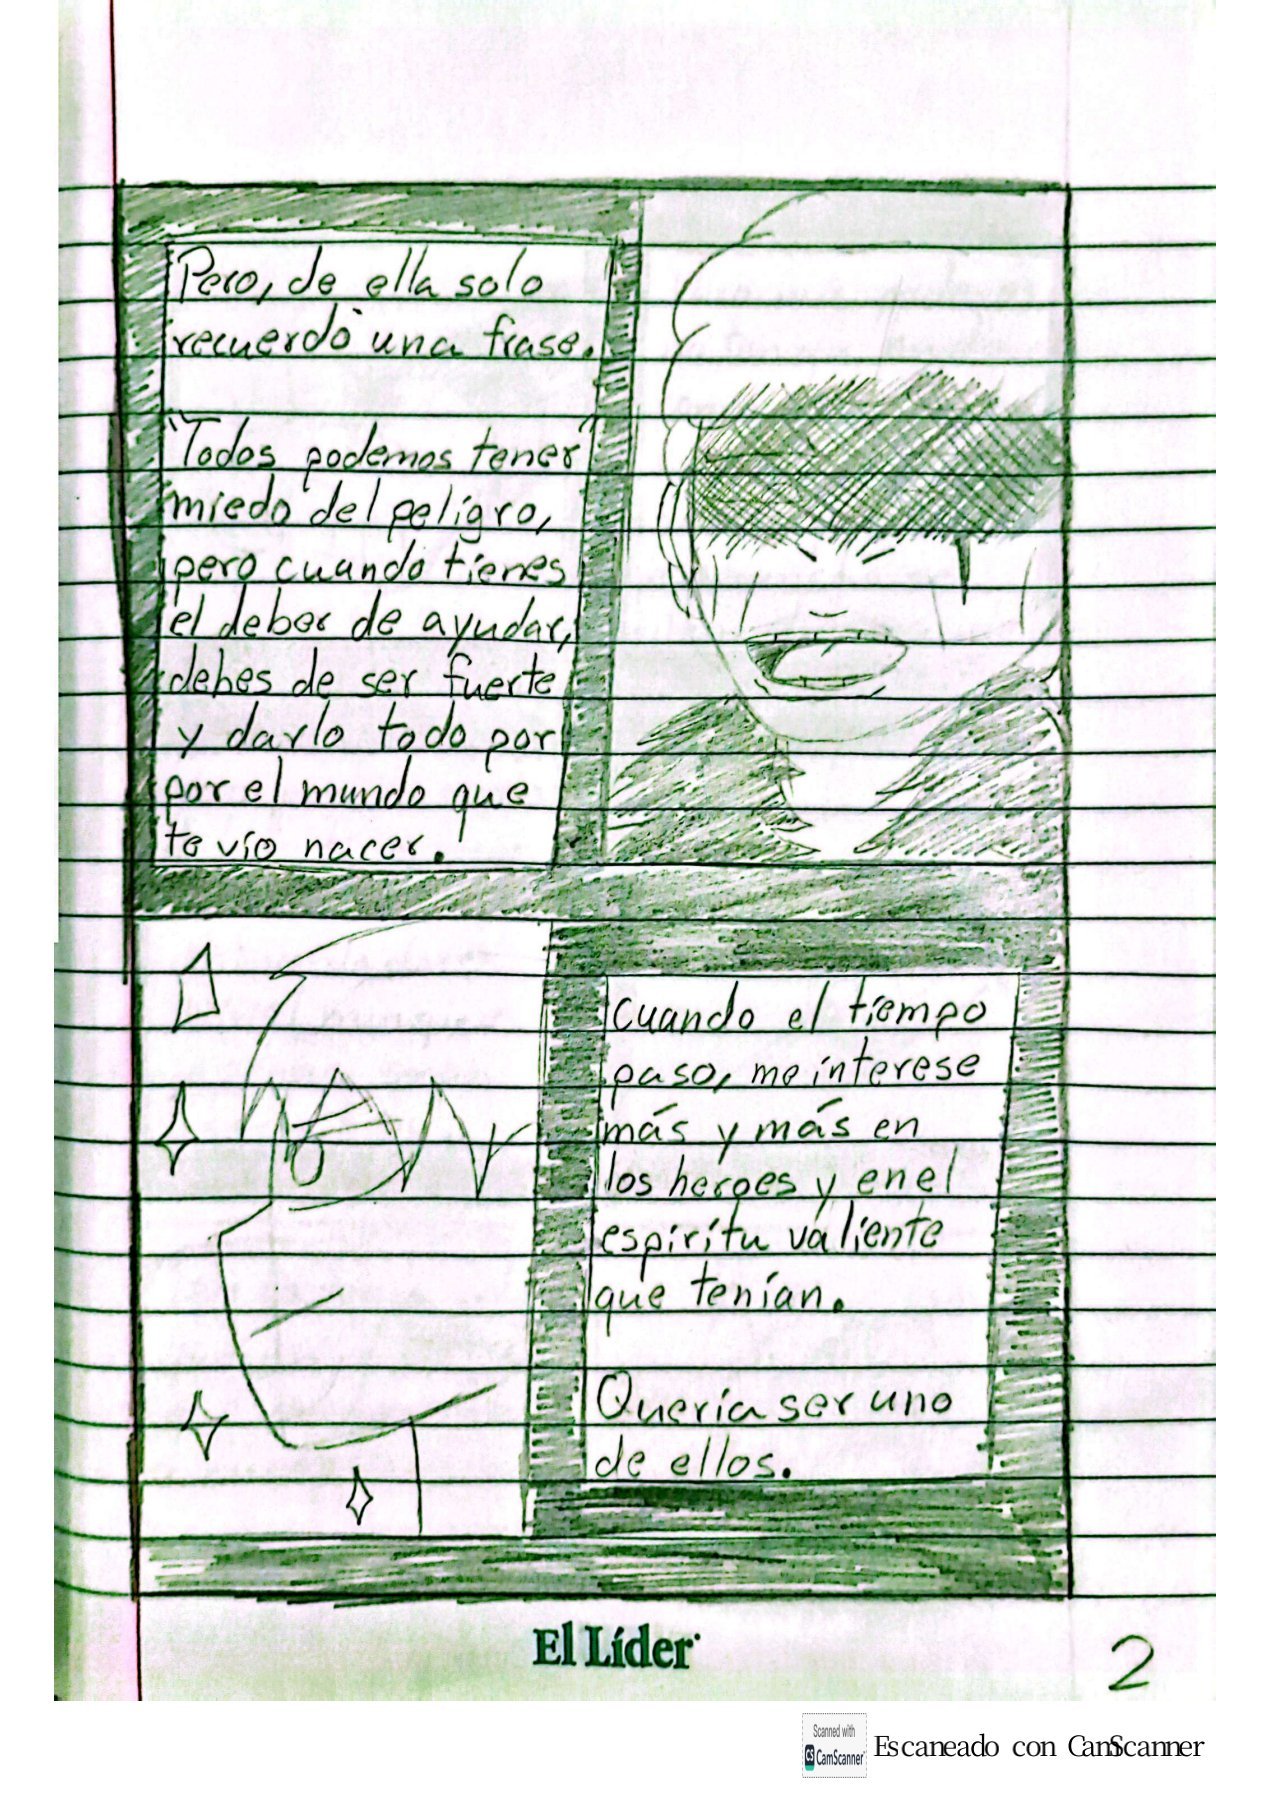 Pero, de ella solo
recuerdo una frase.
"Todos podemos tener"
miedo del peligro,
pero cuando tienes
el deber de ayudar,
debes de ser fuerte
y darlo todo por
por el mundo que
te vio nacer.
Cuando el tiempo
paso, me interese
más y más en
los heroes y en el
espiritu valiente
que tenían.
Quería ser uno
de ellos.
El Líder
2
Scanned with
CS CamScanner
Escaneado con CamScanner